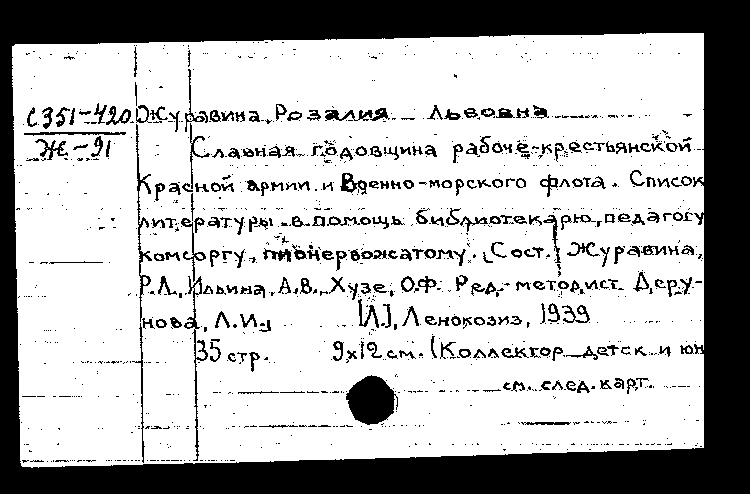 С351-420 Журавина, Розалия Львовна
Ж-91 Славная годовщина рабоче-крестьянской
Красной армии и Военно-морского флота. Список
литературы в помощь библиотекарю, педагогу
комсоргу, пионервожатому. [Сост.] Журавина,
Р.Л., Ильина, А.В., Хузе, О.Ф. Ред.-методист Деру-
нова, Л.И., [Л.], Ленокогиз, 1939
35 стр. 9х12 см. (Коллектор детск и юн
см. след. карт.